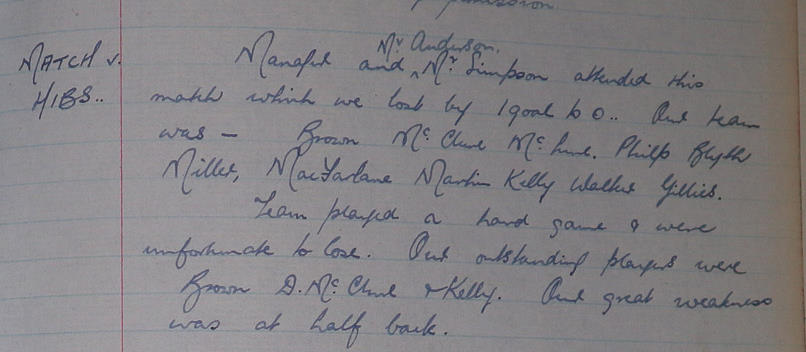 permission.
Mr Anderson.
MATCH v. Manager and ^ Mr Simpson attended this
HIBS.. match which we lost by 1 goal to 0.. Our team
was — Brown Mc Clure Mc Lure. Philp Blyth
Miller, MacFarlane Martin Kelly Walker Gillies.
Team played a hard game & were
unfortunate to lose. Our outstanding players were
Brown D. Mc Clure & Kelly. Our great weakness
was at half back.